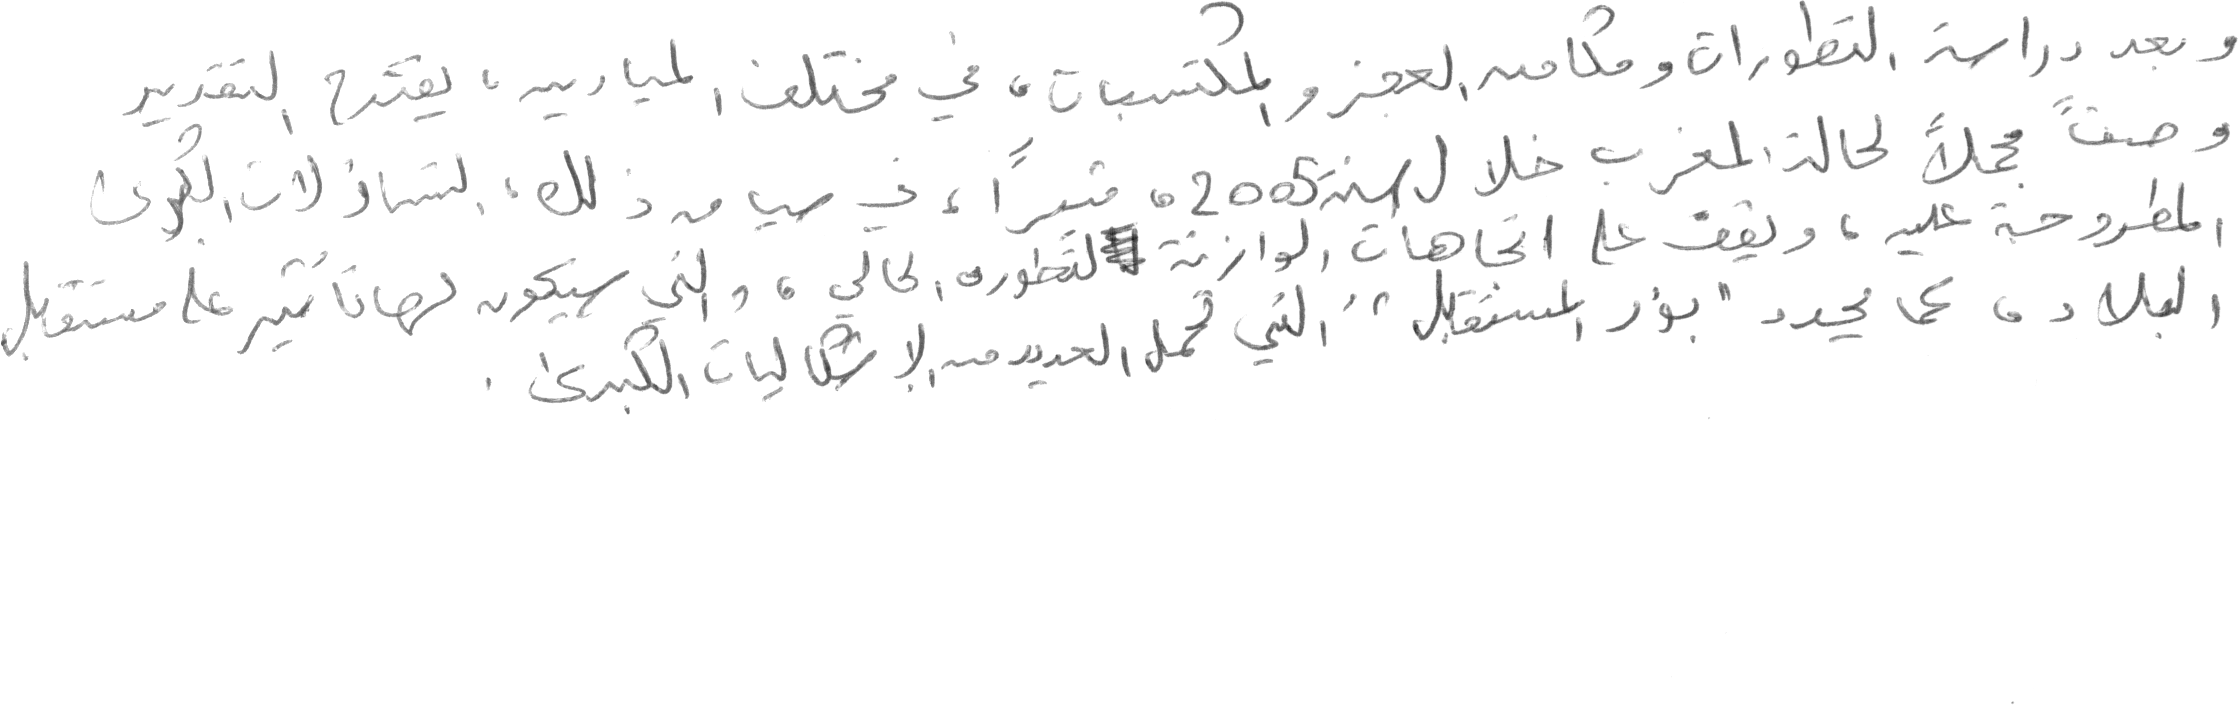 وبعد دراسة التطورات ومكامن العجز والمكتسبات، في مختلف الميادين، يقترح التقدير
وصفاً مجملاً لحالة المغرب خلال سنة 2005، في ذلك، التساؤلات الكبرى
المطروحة عليه، ويقف على اتجاهات الوازنة لتطوره الحالي، والتي سيكون لها تأثير على مستقبل
البلاد، كما يحدد "بؤر المستقبل" التي تحمل العديد من الإشكاليات الكبرى.